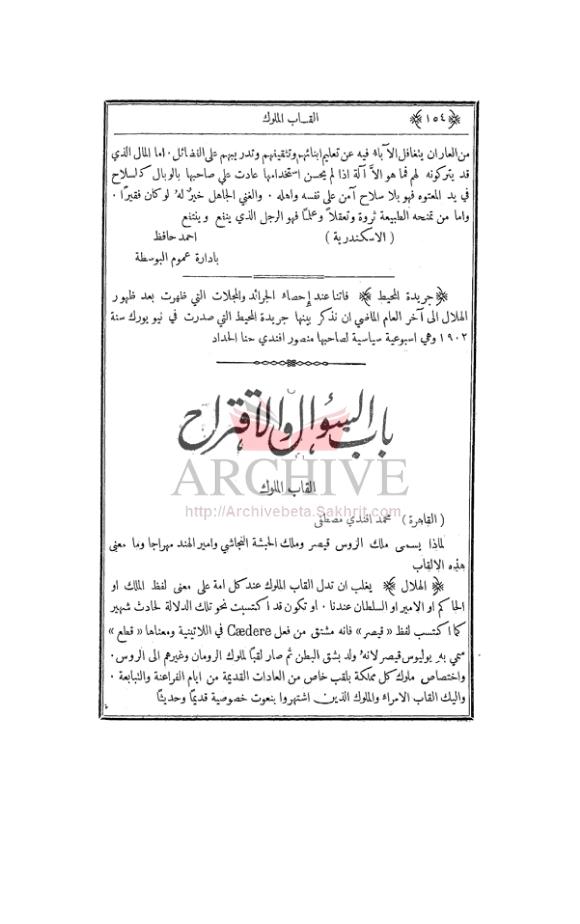 ﴿١٥٤﴾ القاب الملوك
من العار ان يتغافل الآباء فيه عن تعليم ابنائهم وتثقيفهم وتدريبهم على الفضائل . اما المال الذي
قد يتركونه لهم فما هو الاَّ آلة اذا لم يحسن استخدامها عادت على صاحبها بالوبال كالسلاح
في يد المعتوه فهو بلا سلاح آمن على نفسه واهله . والغني الجاهل خيرٌ لهُ لو كان فقيرًا .
واما من تمنحه الطبيعة ثروة وتعقلاً وعلمًا فهو الرجل الذي ينفع وينتفع
( الاسكندرية ) احمد حافظ
بادارة عموم البوسطة
﴿ جريدة المحيط ﴾ فاتنا عند إحصاء الجرائد والمجلات التي ظهرت بعد ظهور
الهلال الى آخر العام الماضي ان نذكر بينها جريدة المحيط التي صدرت في نيويورك سنة
١٩٠٢ وهي اسبوعية سياسية لصاحبها منصور افندي حنا الحداد
باب السؤال والاقتراح
ARCHIVE
القاب الملوك
http://Archivebeta.Sakhrit.com
( القاهرة ) محمد افندي مصطفى
لماذا يسمى ملك الروس قيصر وملك الحبشة النجاشي وامير الهند مهراجا وما معنى
هذه الالقاب
﴿ الهلال ﴾ يغلب ان تدل القاب الملوك عند كل امة على معنى لفظ الملك او
الحاكم او الامير او السلطان عندنا . او تكون قد اكتسبت نحو تلك الدلالة لحادث شهير
كما اكتسب لفظ « قيصر » فانه مشتق من فعل Cædere في اللاتينية ومعناها « قطع »
سمي بهِ يوليوس قيصر لانهُ ولد بشق البطن ثم صار لقبًا لملوك الرومان وغيرهم الى الروس.
واختصاص ملوك كل مملكة بلقب خاص من العادات القديمة من ايام الفراعنة والتبابعة .
واليك القاب الامراء والملوك الذين اشتهروا بنعوت خصوصية قديمًا وحديثًا